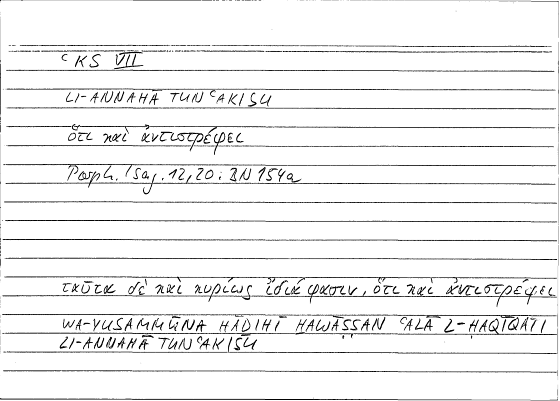 ʿKS VII
LI-ANNAHĀ TUNʿAKISU
ὅτι καὶ ἀντιστρέφει
Porph. Isag. 12,20: BN 154a
ταῦτα δὲ καὶ κυρίως ἴδιά φασιν, ὅτι καὶ ἀντιστρέφει
WA-YUSAMMŪNA HĀḎIHĪ ḪAWĀṢṢAN ʿALĀ L-ḤAQĪQATI
LI-ANNAHĀ TUNʿAKISU